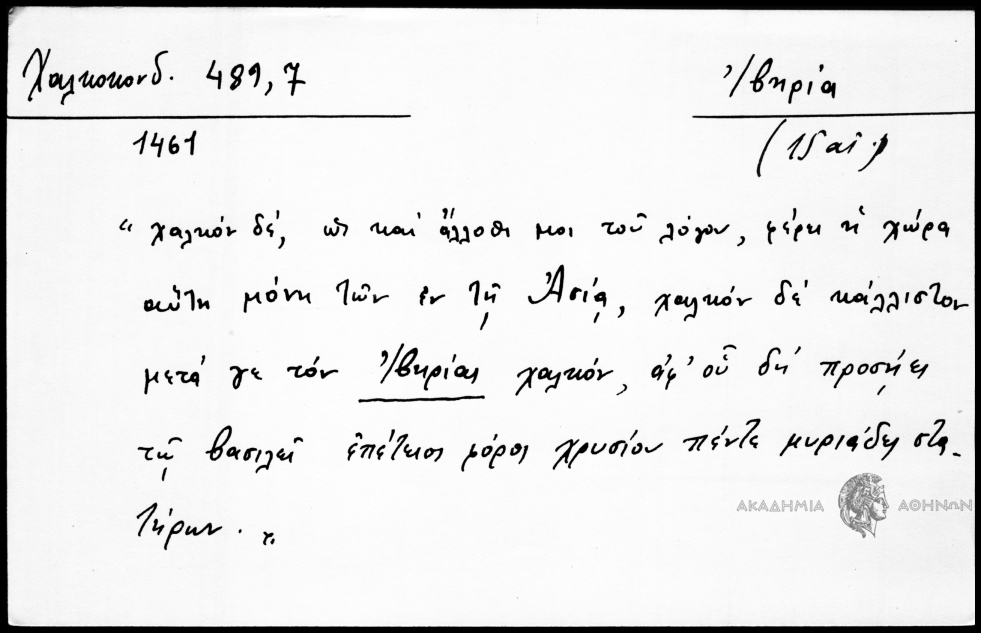 Χαλκοκονδ. 489,7
Ἰβηρία
1461
(15 αἰ.)
“ χαλκόν δέ, ὡς καί ἄλλοθι μοι τοῦ λόγου, φέρει ἡ χώρα
αὕτη μόνη τῶν ἐν τῇ Ἀσίᾳ, χαλκόν δέ κάλλιστον
μετά γε τόν Ἰβηρίας χαλκόν, ἀφ' οὗ δή προσῄει
τῷ βασιλεῖ ἐπέτειος φόρος χρυσίου πέντε μυριάδες στα-
τήρων. „
ΑΚΑΔΗΜΙΑ ΑΘΗΝΩΝ